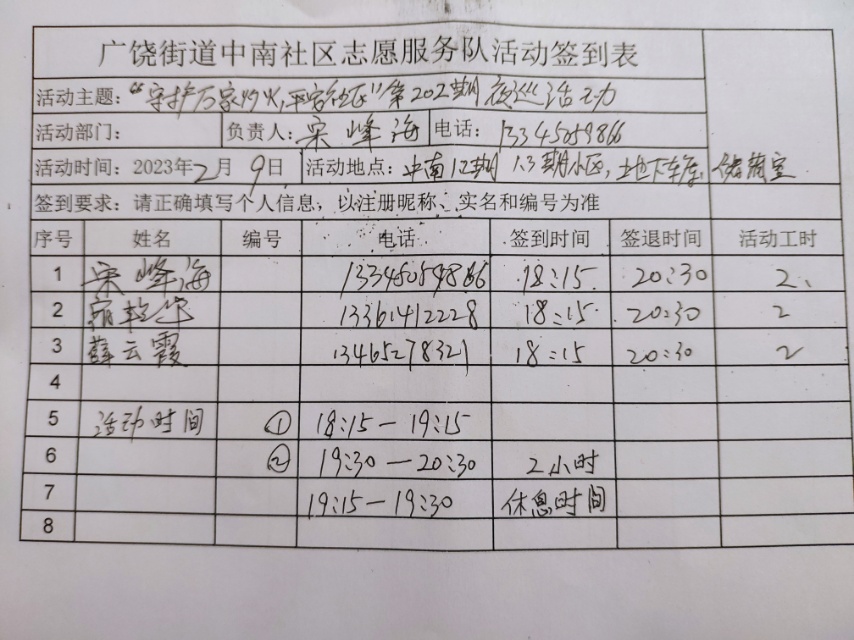 广饶街道中南社区志愿服务队活动签到表
活动主题：“守护万家灯火，平安社区”第202期夜巡活动
活动部门： 负责人：宋峰海 电话：13345059866
活动时间：2023年2月9日 活动地点：中南12期 13期小区，地下车库，储藏室
签到要求：请正确填写个人信息，以注册昵称、实名和编号为准
序号 姓名 编号 电话 签到时间 签退时间 活动工时
1 宋峰海 13345059866 18:15 20:30 2
2 13361412228 18:15 20:30 2
3 薛云霞 13465278321 18:15 20:30 2
4
5 活动时间 ① 18:15－19:15
6 ② 19:30－20:30 2小时
7 19:15－19:30 休息时间
8